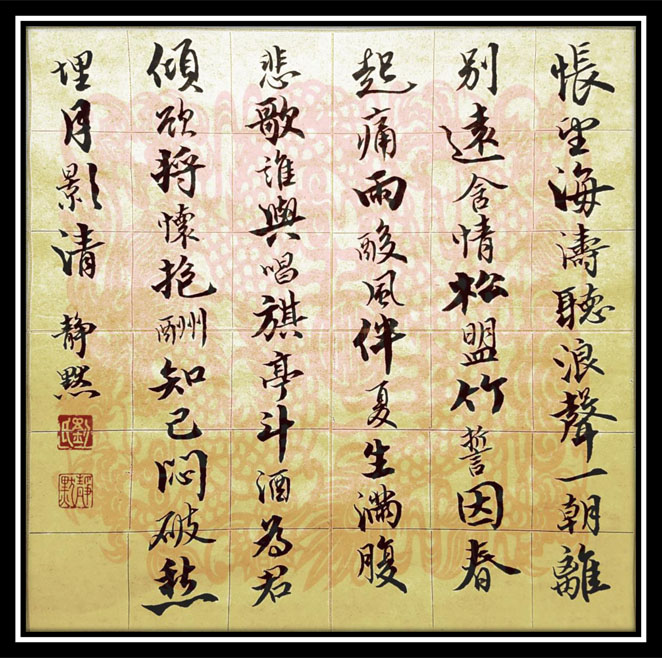 悵望海濤聽浪聲一朝離
別遠含情松盟竹誓因春
起痛雨酸風伴夏生滿腹
悲歌誰與唱旗亭斗酒為君
傾欲將懷抱酬知己悶破愁
埋月影清 靜默
劉氏
靜默